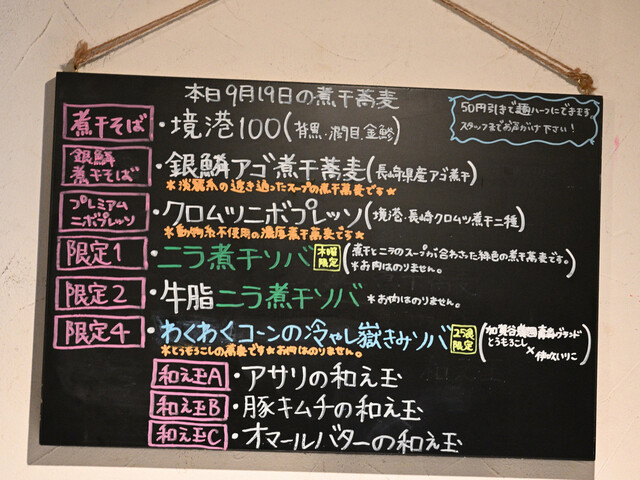 本日9月19日の煮干蕎麦
50円引きで麺ハーフにできます。
スタッフまでお声がけ下さい!
煮干そば ・境港100(背黒.潤目.金鯵)
銀鱗煮干そば ・銀鱗アゴ煮干蕎麦(長崎県産アゴ煮干)
*淡麗系の透き通ったスープの煮干蕎麦です*
プレミアムニボプレッソ ・クロムツニボプレッソ(境港・長崎クロムツ煮干二種)
*動物系不使用の濃厚煮干蕎麦です*
限定1 ・ニラ煮干ソバ 木曜限定 (煮干とニラのスープが合わさった緑色の煮干蕎麦です。
*お肉はのりません。)
限定2 ・牛脂ニラ煮干ソバ *お肉はのりません。
限定4 ・わくわくコーンの冷やし嶽きみソバ 25食限定
*とうもろこしの蕎麦です*お肉はのりません。
グランド
とうもろこし × いりこ
和え玉A ・アサリの和え玉
和え玉B ・豚キムチの和え玉
和え玉C ・オマールバターの和え玉